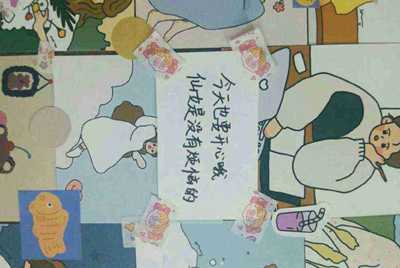 今天也要开心哦
仙女是没有烦恼的